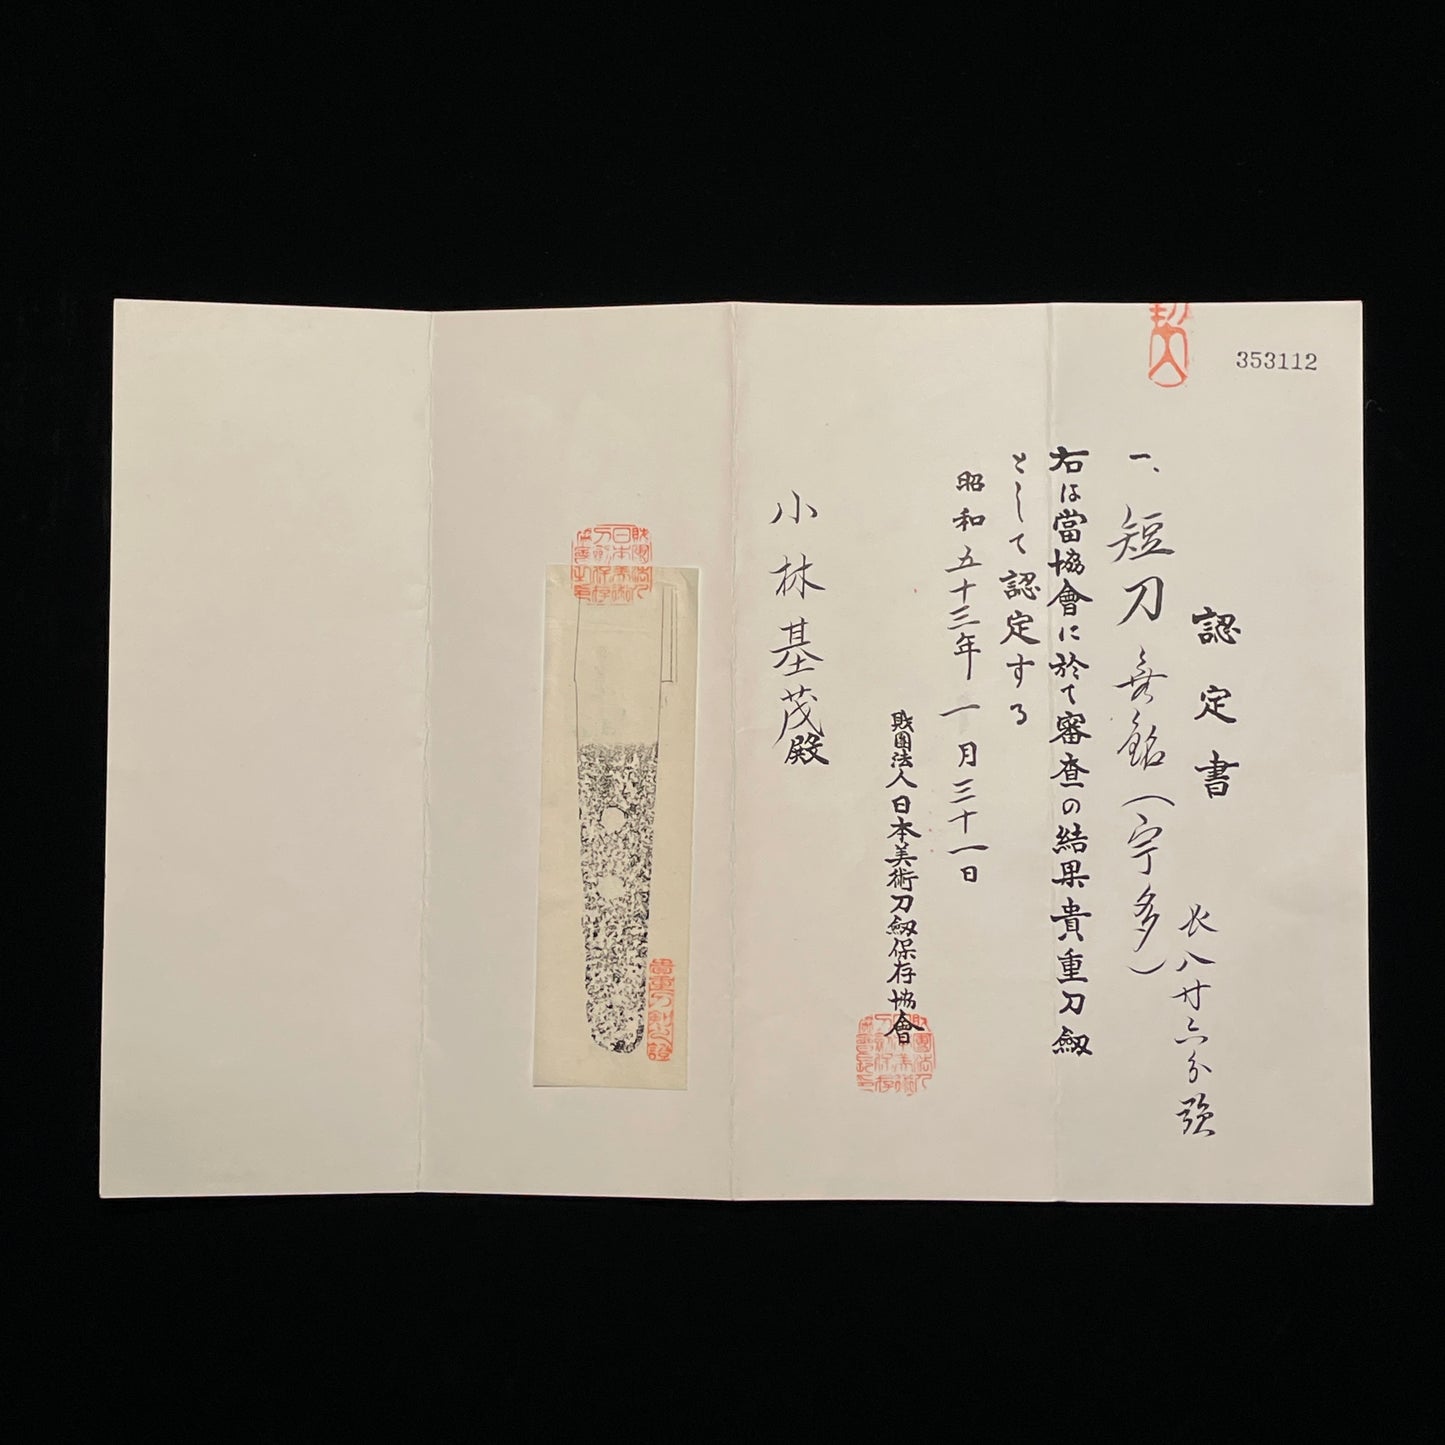 353112
認定書
一、短刀 無銘（宇多）
長八寸六分強
右は當協會に於て審査の結果貴重刀劔
として認定する
昭和五十三年一月三十一日
財團法人日本美術刀劔保存協會
小林基茂殿
貴重刀剣之證